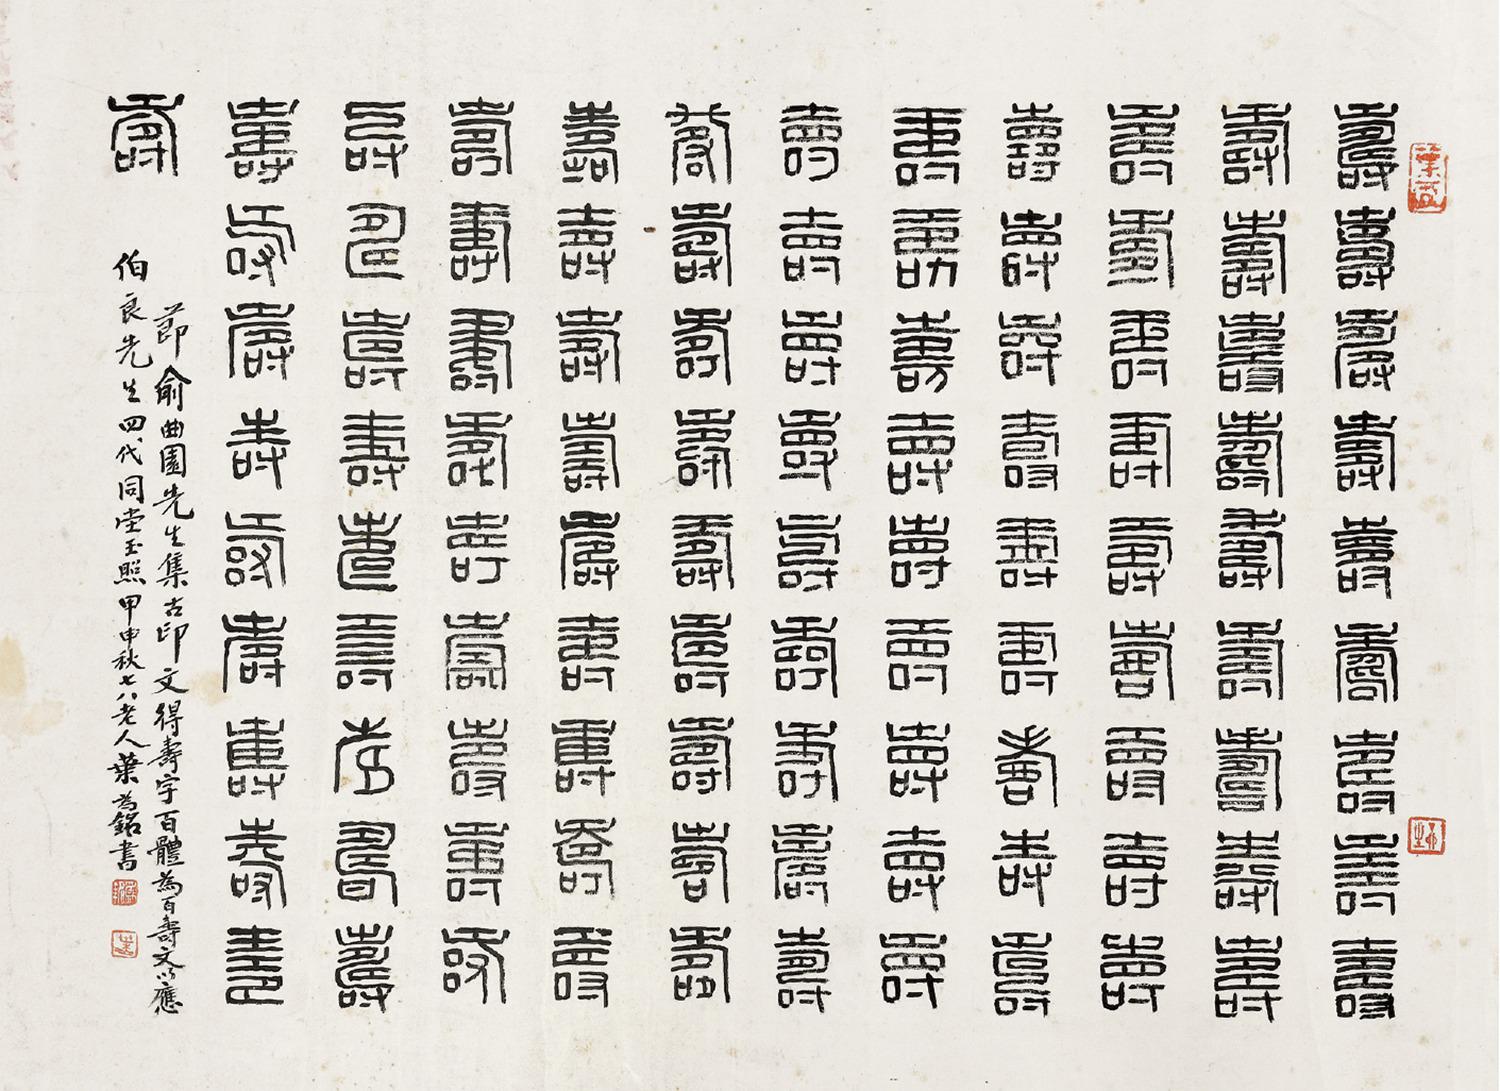 壽壽壽壽壽壽壽壽壽
壽壽壽壽壽壽壽壽壽
壽壽壽壽壽壽壽壽壽
壽壽壽壽壽壽壽壽壽
壽壽壽壽壽壽壽壽壽
壽壽壽壽壽壽壽壽壽
壽壽壽壽壽壽壽壽壽
壽壽壽壽壽壽壽壽壽
壽壽壽壽壽壽壽壽壽
壽壽壽壽壽壽壽壽壽
壽壽壽壽壽壽壽壽壽
壽
節俞曲園先生集古印文得壽字百體為百壽文以應
伯良先生四代同堂玉照甲申秋七八老人葉為銘書